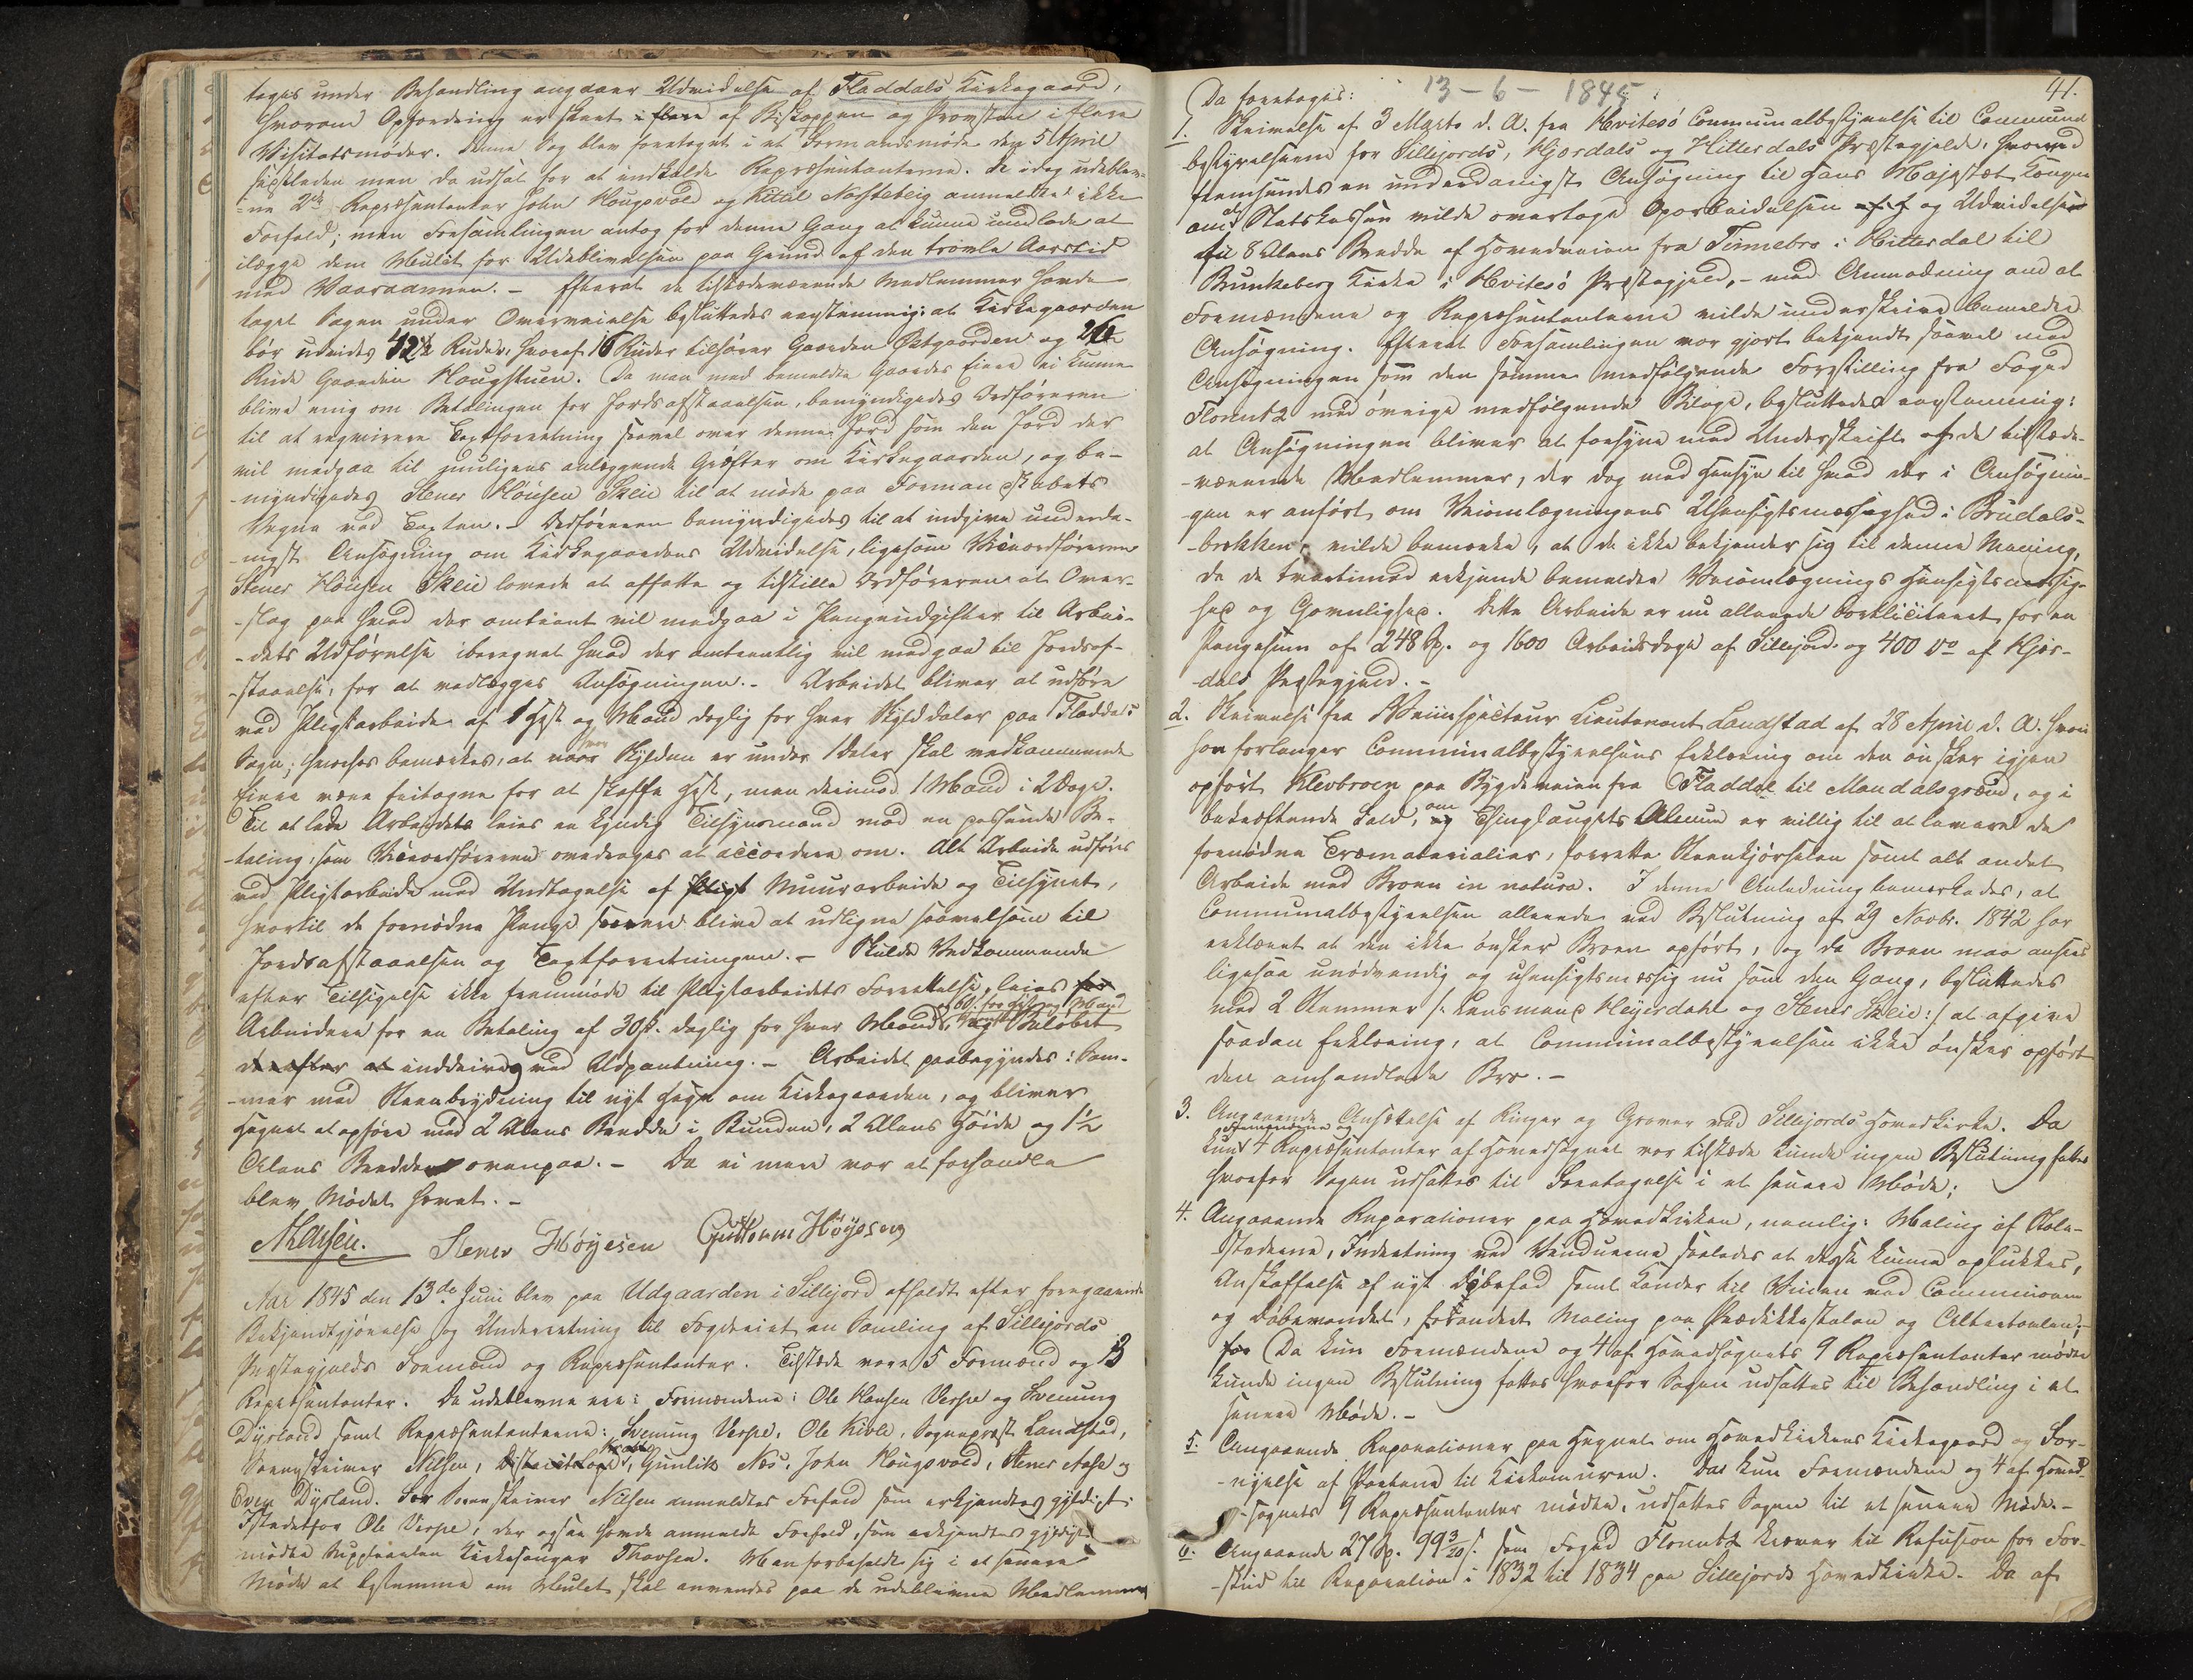 tages under Behandling angaaer Udvidelse af Fladdals Kirkegaard,
hvorom Opfordring er skeet i flere af Biskoppen og Provsten i flere
Visitatsmøder. Denne Sag blev foretaget i et Formandsmøde den 5 April
sidstleden men da udsat for at indkalde Repræsentanterne. De idag udeblev-
ne 2de Repræsentanter John Hougsvold og Kittil anmeldte ikke
Forfald; men Forsamlingen antog for denne Gang at kunne undlade at
ilægge dem Mulct for Udeblivelsen paa Grund af den travle Aarstid
med Vaaraannen. - Efterat de tilstædeværende Medlemmer havde
taget Sagen under Overveielse besluttedes eenstemmig: at Kirkegaarden
bør udvides Ruder, hvoraf 16 Ruder tilhører Gaarden Østgaarden og
Rude Gaarden Hougstuen. Da man med bemeldte Gaardes Eiere ei kunne
blive enig om Betalingen for Jordafstaaelsen, bemyndigedes Ordføreren
til at reqvirere Taxtforretning saavel over denne Jord som den Jord der
vil medgaa til muligens anlæggende Grøfter om Kirkegaarden, og be-
-myndigedes Stener Høiesen Skeie til at møde paa Formandskabets
Vegne ved Taxten. - Ordføreren bemyndigedes til at indgive underda-
-nigst Ansøgning om Kirkegaardens Udvidelse, ligesom Viceordføreren
Stener Høiesen Skeie lovede at affatte og tilstille Ordføreren et Over-
-slag paa hvad der omtrent vil medgaa i Pengeudgifter til Arbei-
-dets Udførelse iberegnet hvad der omtrentlig vil medgaa til Jordaf-
-staaelse, for at vedlægges Ansøgningen. - Arbeidet bliver at udføre
ved Pligtarbeide af 1 Hest og Mand daglig for hver Skylddaler paa Fladdals
Sogn; hvorhos bemærkes, at naar Skylden er under 1 Daler skal vedkommende
Eiere være fritagne for at skaffe Hest, men derimod 1 Mand i 2 Dage.
Til at lede Arbeidet leies en kyndig Tilsynsmand mod en passende Be-
-taling, som Viceordføreren overdrages at accordere om. Alt Arbeide udføres
ved Pligtarbeide med Undtagelse af Pligt Muurarbeide og Tilsynet,
hvortil de fornødne Penge blive at udligne saavelsom til
Jordafstaaelsen og Taxtforretningen. - Skulde Vedkommende
efter Tilsigelse ikke fremmøde til Pligtarbeidets Forrettelse, leies for
60 for Hest og Mand
Arbeidere for en Betaling af 30 s. daglig for hver Mand, Beløbet
derefter at inddrives ved Udpantning. - Arbeidet paabegyndes i Som-
-mer med Steenbrydning til nyt Hegn om Kirkegaarden, og bliver
Hegnet at opføre med 2 Alens Bredde i Bunden, 2 Alens Høide og 1½
Alens Bredde ovenpaa. - Da ei mere var at forhandle
blev Mødet hævet. -
Stener Høyesen Guttorm Høyesen
Aar 1845 den 13de Juni blev paa Udgaarden i Sillejord afholdt efter foregaaende
Bekjendtgjørelse og Underretning til Fogderiet en Samling af Sillejords
Præstegjelds Formænd og Repræsentanter. Tilstæde vare 5 Formænd og 13
Repræsentanter. De udeblevne ere: Formændene: Ole Hansen Verpe og Svenung
Dyrland samt Repræsentanterne: Svenung Verpe, Ole Kivle, Sognepræst Landstad,
Sorenskriver Nilsen, Gunlik Næs, John Hougsvold, Stener Aase og
Even Dyrland. For Sorenskriver Nilsen anmeldtes Forfald som erkjendtes gyldigt.
Istedetfor Ole Verpe, der ogsaa havde anmeldt Forfald, som erkjendtes gyldigt
mødte Suppleanten Kirkesanger Thorsen. Man forbeholdt sig i et senere
Møde at bestemme om Mulct skal anvendes paa de udeblevne Medlemmer
13-6-1845
41.
Da foretoges:
1. Skrivelse af 3 Marts d. A. fra Hvitesø Communalbestyrelse til Communal
bestyrelserne for Sillejords, Hjerdals og Hitterdals Præstegjelde, hvorved
fremsendes en underdanigst Ansøgning til Hans Majestæt Kongen
om at Statskassen vilde overtage Oparbeidelsen af og Udvidelsen
til 8 Alens Bredde af Hovedveien fra Tinnebro i Hitterdal til
Brunkeberg Kirke i Hvitesø Præstegjeld, - med Anmodning om at
Formændene og Repræsentanterne vilde underskrive bemeldte
Ansøgning. Efterat Forsamlingen var gjort bekjendt saavel med
Ansøgningen som den samme medfølgende Forestilling fra Foged
Florentz med øvrige medfølgende Bilage, besluttedes eenstemmig:
at Ansøgningen bliver at forsyne med Underskrift af de tilstæde-
-værende Medlemmer, der dog med Hensyn til hvad der i Ansøgnin-
-gen er anført om Veiomlægningens Uhensigtsmæssighed i Brudals-
-brækken, vilde bemærke, at de ikke bekjender sig til denne Mening,
da de tvertimod erkjende bemeldte Veiomlægnings Hensigtsmæssig-
hed og Gavnlighed. Dette Arbeide er nu allerede bortliciteret for en
Pengesum af 248 Sp. og 1600 Arbeidsdage af Sillejord og 400 do af Hjer-
-dals Præstegjeld. -
2. Skrivelse fra Veiinspecteur Lieutenant Landstad af 28 April d. A. hvori
han forlanger Communalbestyrelsens Erklæring om den ønsker igjen
opført Klevbroen paa Bygdeveien fra Fladdal til Mandalsgrænd, og i
bekræftende Fald, om Thinglaugets Almue er villig til at levere de
fornødne Træmaterialier, forrette Steenkjørselen samt alt andet
Arbeide med Broen in natura. I denne Anledning bemærkedes, at
Communalbestyrelsen allerede ved Beslutning af 29 Novbr. 1842 har
erklæret at den ikke ønsker Broen opført, og da Broen maa ansees
ligesaa unødvendig og uhensigtsmæssig nu som den Gang, besluttedes
med 2 Stemmer /: Lensmand Heyerdahl og Stener Skeie :/ at afgive
saadan Erklæring, at Communalbestyrelsen ikke ønsker opført
den omhandlede Bro. -
3. Angaaende Ansættelse af Ringer og Graver ved Sillejords Hovedkirke. Da
Formændene og
kun 4 Repræsentanter af Hovedsognet var tilstæde kunde ingen Beslutning fattes
hvorfor Sagen udsattes til Foretagelse i et senere Møde;
4. Angaaende Reparationer paa Hovedkirken, nemlig: Maling af Stole-
staderne, Indretning ved Vinduerne saaledes at disse kunne oplukkes,
Anskaffelse af nyt Døbefad samt Kander til Vinen ved Communionen
og Døbevandet, forandret Maling paa Prædikestolen og Altertavlen; -
for Da kun Formændene og 4 af Hovedsognets 9 Repræsentanter mødte
kunde ingen Beslutning fattes hvorfor Sagen udsattes til Behandling i et
senere Møde. -
5. Angaaende Reparationer paa Hegnet om Hovedkirkens Kirkegaard og For-
-nyelse af Portene til Kirkemuren. Da kun Formændene og 4 af Hoved-
-sognets 9 Repræsentanter mødte, udsattes Sagen til et senere Møde. -
6. Angaaende 27 Sp. 99 3/20 s. som Foged Florentz kræver til Refusion for For-
-skud til Reparation i 1832 til 1834 paa Sillejords Hovedkirke. Da af